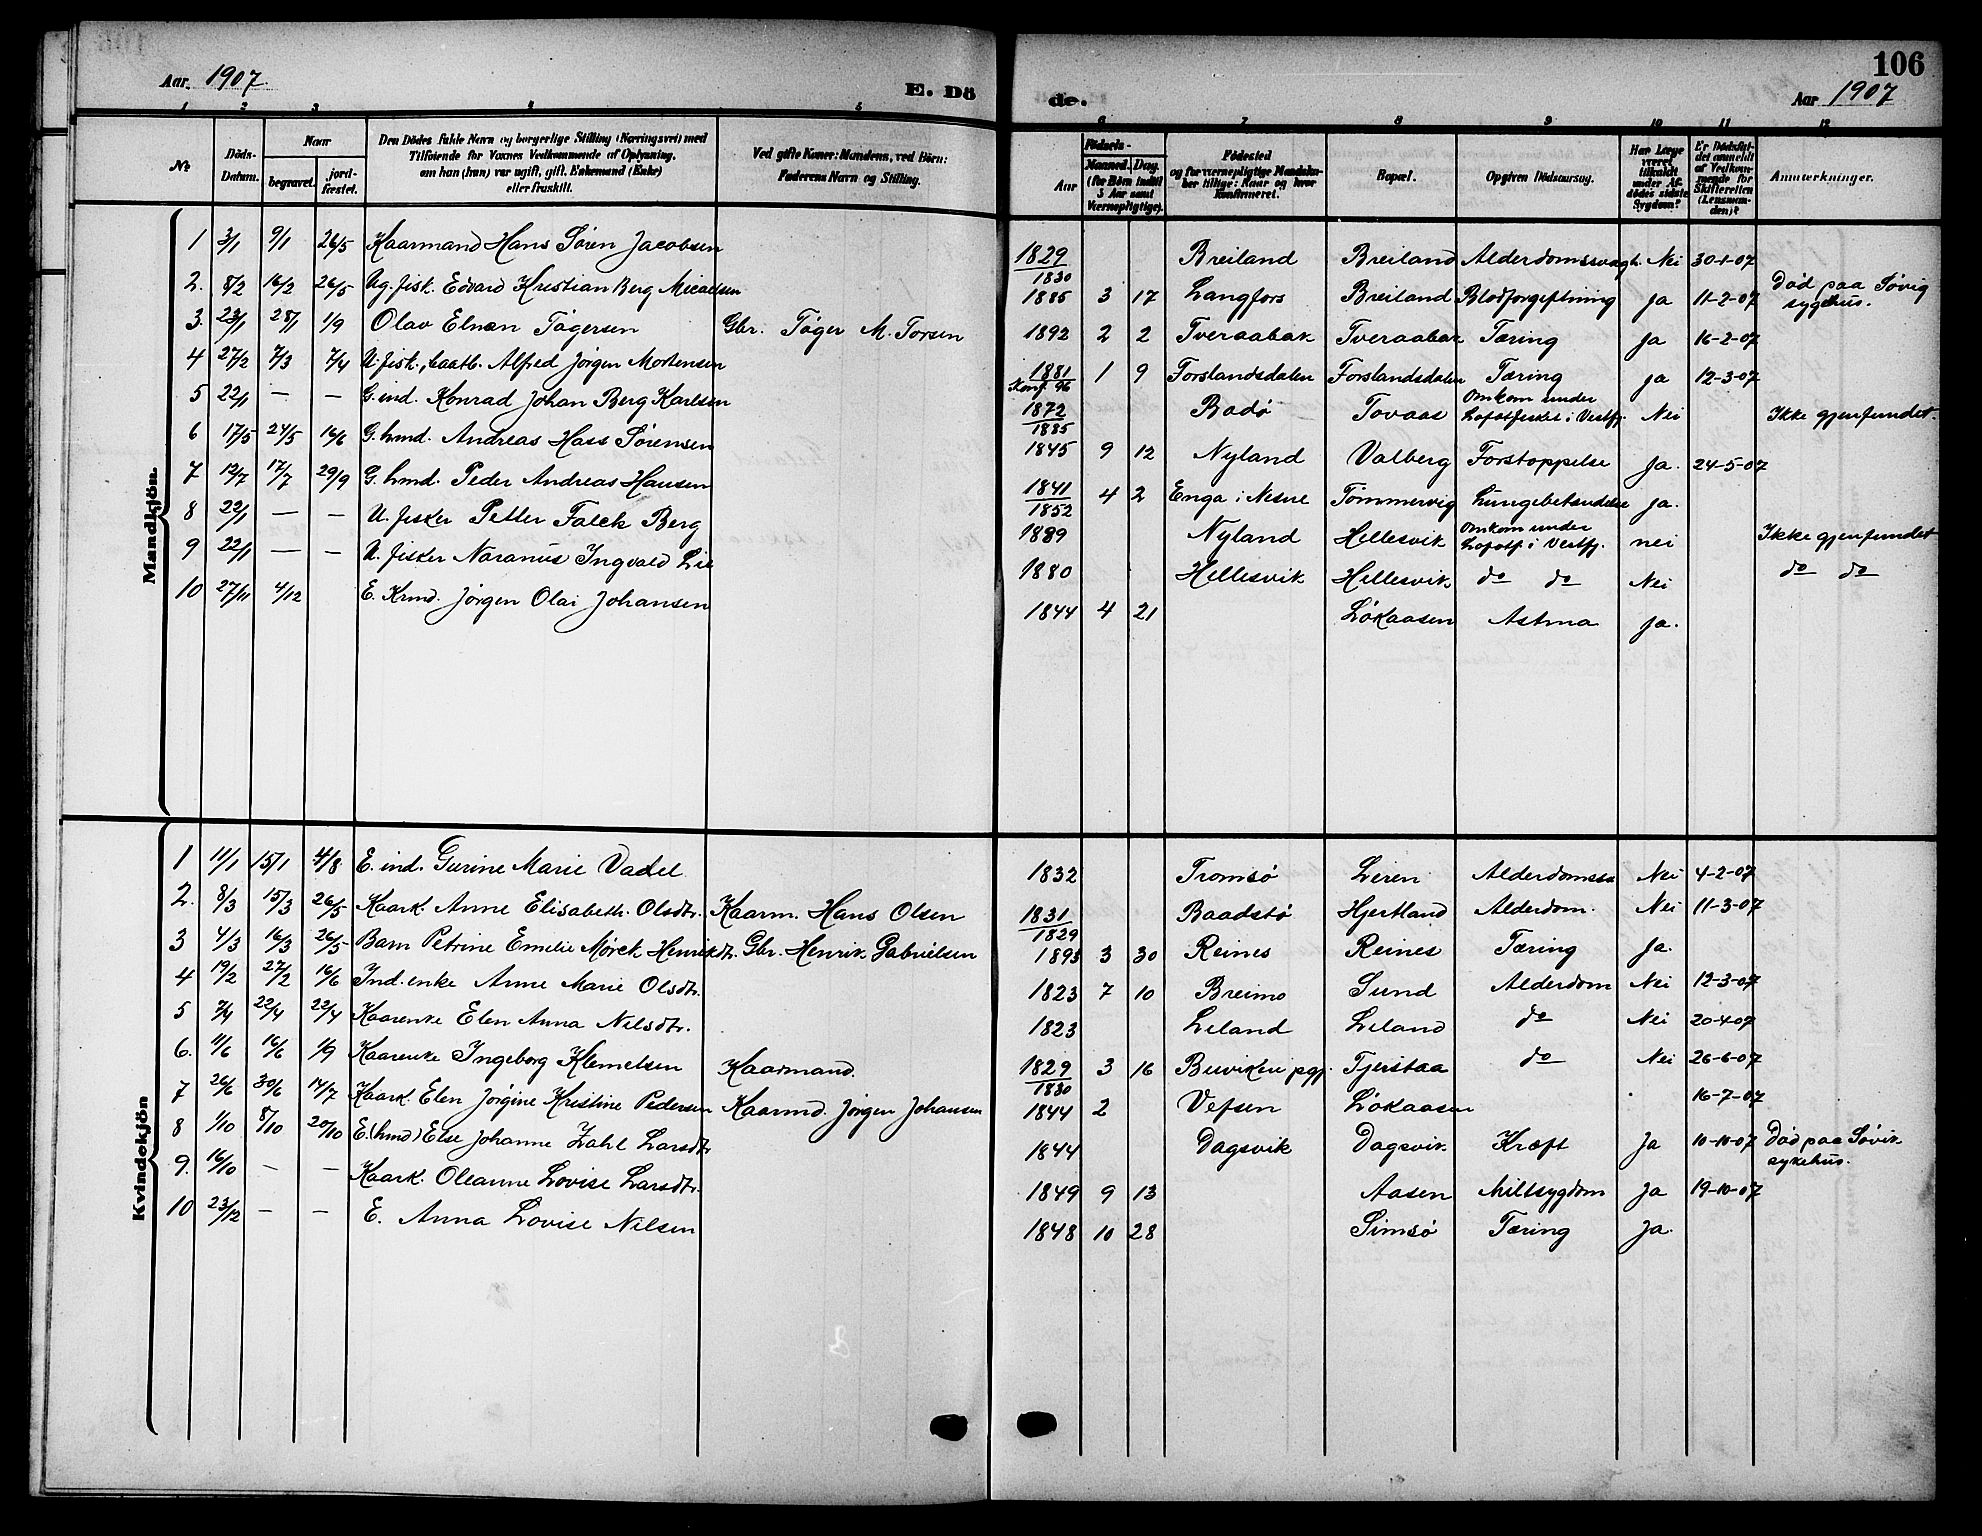 Aar 1907
E. Dö
de.
106
Aar 1907
1 2 3 4 5
6 7 8 9 10 11 12
№
Döds-Datum.
Naar
begravet.
jord-fæstet.
Den Dödes fulde Navn og borgerlige Stilling (Næringsvei) med
Tilføiende for Voxnes Vedkommende af Oplysning,
om han (hun) var ugift, gift, Enkemand (Enke)
eller fraskilt.
Ved gifte Koner: Mandens, ved Börn:
Faderens Navn og Stilling.
Aar
Fødsels-
Maaned. Dag.
(for Börn indtil
5 Aar samt
Værnepligtige).
Födested
og for værnepligtige Mandskaber tillige: Naar og hvor
konfirmeret.
Bopæl.
Opgiven Dödsaarsag.
Har Læge
været
tilkaldt
under Afdödes sidste
Sygdom?
Er Dödsfaldet anmeldt
af Vedkommende for
Skifteretten
(Lensmanden)?
Anmerkninger.
Mandkjön
1 3/1 9/1 26/5 Kaarmand Hans Søren Jacobsen 1829/1830 Breiland Breiland Alderdomssvagh. Nei 30-1-07
2. 8/2 16/2 26/5 Ug. fisk. Edvard Kristian Berg Micaelsen 1885 3 17 Langfors Breiland Blodforgiftning Ja 11-2-07 Död paa Søvig
sygehus.
3. 23/1 28/1 1/9 Olav Elnan Tøgersen Gbr. Tøger M. Torsen 1892 2 2 Tveraabak Tveraabak Tæring Ja 16-2-07
4 27/2 7/3 7/4 U. fisk., baatb. Alfred Jørgen Mortensen 1881 Konf. 96 1 9 Forslandsdalen Forslandsdalen Tæring Ja 12-3-07
5 22/1 — — G. ind. Konrad Johan Berg Karlsen 1872/1885 Bodø Tovaas Omkom under
Lofotfisket i Vestfj. Nei Ikke gjenfundet.
6 17/5 24/5 16/6 G. hmd. Andreas Hass Sørensen 1845 9 12 Nyland Valberg Forstoppelse Ja. 24-5-07
7 12/7 17/7 29/9 G. hmd. Peder Andreas Hansen 1841/1852 4 2 Enga i Nesne Tømmervig Lungebetændelse Ja.
8 22/1 — — U. fisker Petter Falck Berg 1889 Nyland Hellesvik Omkom under
Lofotf. i Vestfj. nei Ikke gjenfundet
9 22/1 — — U. fisker Naranus Ingvald Lie 1880 Hellesvik Hellesvik do do Nei do do
10 27/11 4/12 E. Kmd. Jørgen Olai Johansen 1844 4 21 Løkaasen Astma Ja.
Kvindekjön
1 11/1 15/1 4/8 E. ind. Gurine Marie Vadel 1832 Tromsø Leren Alderdomssv Nei 4-2-07
2. 8/3 15/3 26/5 Kaark. Anne Elisabeth. Olsdtr. Kaarm. Hans Olsen 1831/1829 Baadstø Hjertland Alderdom. Nei 11-3-07
3 4/3 16/3 26/5 Barn Petrine Emelie Mørck Henriksdtr. Gbr. Henrik Gabrielsen 1893 3 30 Reines Reines Tæring Ja.
4 19/2 27/2 16/6 Ind. enke Anne Marie Olsdtr. 1823 7 10 Breimo Sund Alderdom Nei 12-3-07
5 7/4 22/4 22/4 Kaarenke Elen Anna Nilsdtr. 1823 Leland Leland do Nei 20-4-07
6. 11/6 16/6 1/9 Kaarenke Ingeborg Klemetsen Kaarmand. 1829/1830 3 16 pgj. Tjerstaa do Nei 26-6-07
7 26/6 30/6 14/7 Kaark. Elen Jørgine Kristine Pedersen Kaarmd. Jørgen Johansen 1844 2 Vefsen Løkaasen 16-7-07
8 1/10 8/10 20/10 E. (hmd) Else Johanne Zahl Larsdtr 1844 Dagsvik Dagsvik Kræft Ja 10-10-07 Död paa Søvik
sykehus.
9. 16/10 — — Kaark. Oleanne Lovise Larsdtr. 1849 9 13 Aasen Miltsygdom Ja 19-10-07
10 23/12 — — E. Anna Lovise Nilsen 1848 10 28 Simsø Tæring Ja.